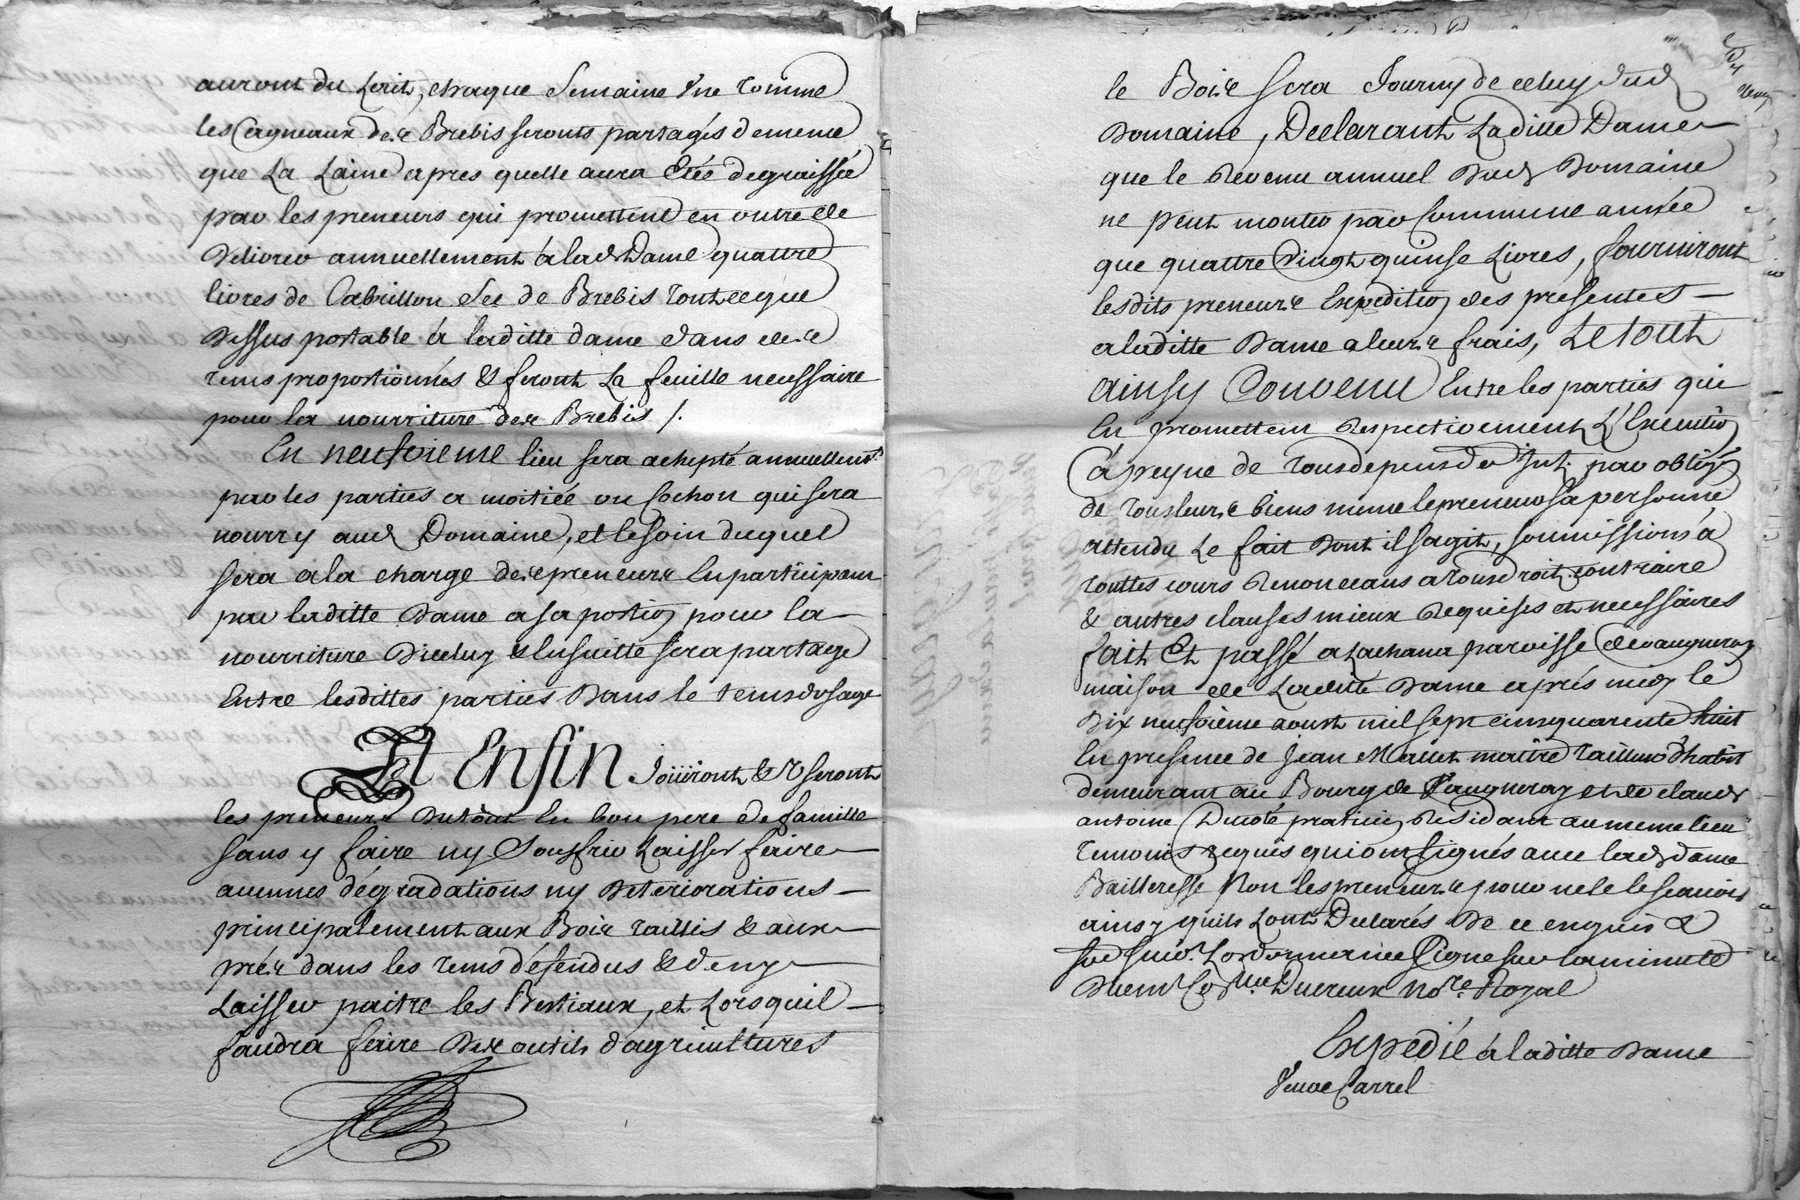 auront du Lait, chaque Semaine une tomme
les agneaux des Brebis seronts partagés de meme
que La Laine apres quelle aura Etée degraissée
par les preneurs qui promettent en outre de
delivrer annuellement à lad dame quattre
livres de Cabrillon sec de Brebis tout ce que
dessus portable à laditte dame dans des
tems proportionnés & feront La feuille necessaire
pour la nourriture des Brebis /.
En neufvieme lieu sera achepté annuellemt
par les parties a moitiée un Cochon qui sera
nourry aud Domaine, et le soin duquel
sera a la charge des preneurs En participant
par laditte dame a sa portion pour la
nourriture d'iceluy & Ensuitte sera partagé
Entre lesdittes parties dans le tems d'usage
Et Enfin joüiront & useront
les preneurs du tout En bon pere de famille
sans y faire ny Souffrir Laisser faire
aucunes dégradations ny deteriorations
principalement aux Bois taillis & aux
prés dans les tems défendus & d'en y
Laisser paitre les Bestiaux, et Lorsquil
faudra faire des outils d'agricultures
le Bois sera fourny de celuy dud
Domaine, Declarant Laditte Dame
que le Revenu annuel dud Domaine
ne peut monter par Commune année
que quattre Vingt quinse Livres, fourniront
lesdits preneurs Expedition des presentes
a laditte dame a leurs frais, Le tout
ainsy Convenu Entre les parties qui
En promettent Respectivement L'Execution
à peyne de tous depens par oblign
de tous leurs biens meme le preneur sa personne
attendu Le fait dont il s'agit, soumissions a
touttes cours Renonceans a tous droit contraire
& autres clauses mieux Requises et necessaires
fait Et passé a Lachana paroisse de vaugneray
maison de Laditte dame aprés midy le
dix neufvieme aoust mil sept cens quarente huit
En presence de Jean Mallet maitre tailleur d'habit
demeurant au Bourg de Vaugneray et de claude
antoine praticien Residant au meme lieu
temoins Requis qui ont signés avec lad dame
Bailleresse Non les preneurs pour ne le scavoir
ainsy quils L'ont Declarés de ce enquis &
suiv. L'ordonnance Signe sur la minutte
Ducreux Nore Royal
Expedié à laditte dame
Veuve Carrel